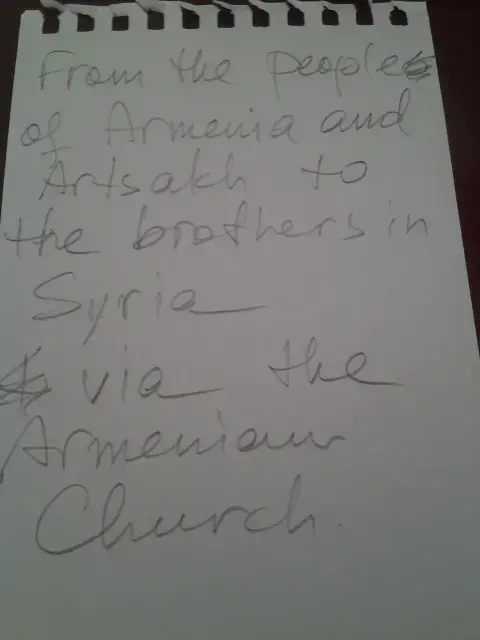 From the people
of Armenia and
Artsakh to
the brothers in
Syria
via the
Armenian
Church.